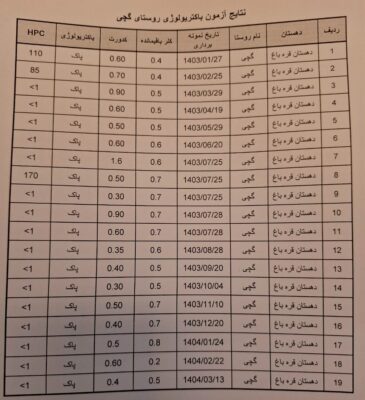 نتایج آزمون باکتریولوژی روستای گچی
ردیف دهستان نام روستا تاریخ نمونه برداری کلر باقیمانده کدورت باکتریولوژی HPC
1 دهستان قره باغ گچی 1403/01/27 0.4 0.60 پاک 110
2 دهستان قره باغ گچی 1403/02/25 0.4 0.70 پاک 85
3 دهستان قره باغ گچی 1403/03/29 0.5 0.90 پاک <1
4 دهستان قره باغ گچی 1403/04/19 0.5 0.60 پاک <1
5 دهستان قره باغ گچی 1403/05/29 0.5 0.50 پاک <1
6 دهستان قره باغ گچی 1403/06/20 0.6 0.60 پاک <1
7 دهستان قره باغ گچی 1403/07/25 0.6 1.6 پاک <1
8 دهستان قره باغ گچی 1403/07/25 0.7 0.50 پاک 170
9 دهستان قره باغ گچی 1403/07/25 0.7 0.30 پاک <1
10 دهستان قره باغ گچی 1403/07/28 0.7 0.90 پاک <1
11 دهستان قره باغ گچی 1403/07/28 0.7 0.60 پاک <1
12 دهستان قره باغ گچی 1403/08/28 0.6 0.35 پاک <1
13 دهستان قره باغ گچی 1403/09/20 0.5 0.40 پاک <1
14 دهستان قره باغ گچی 1403/10/04 0.5 0.30 پاک <1
15 دهستان قره باغ گچی 1403/11/10 0.7 0.50 پاک <1
16 دهستان قره باغ گچی 1403/12/20 0.7 0.40 پاک <1
17 دهستان قره باغ گچی 1404/01/24 0.8 0.5 پاک <1
18 دهستان قره باغ گچی 1404/02/22 0.2 0.60 پاک <1
19 دهستان قره باغ گچی 1404/03/13 0.5 0.4 پاک <1